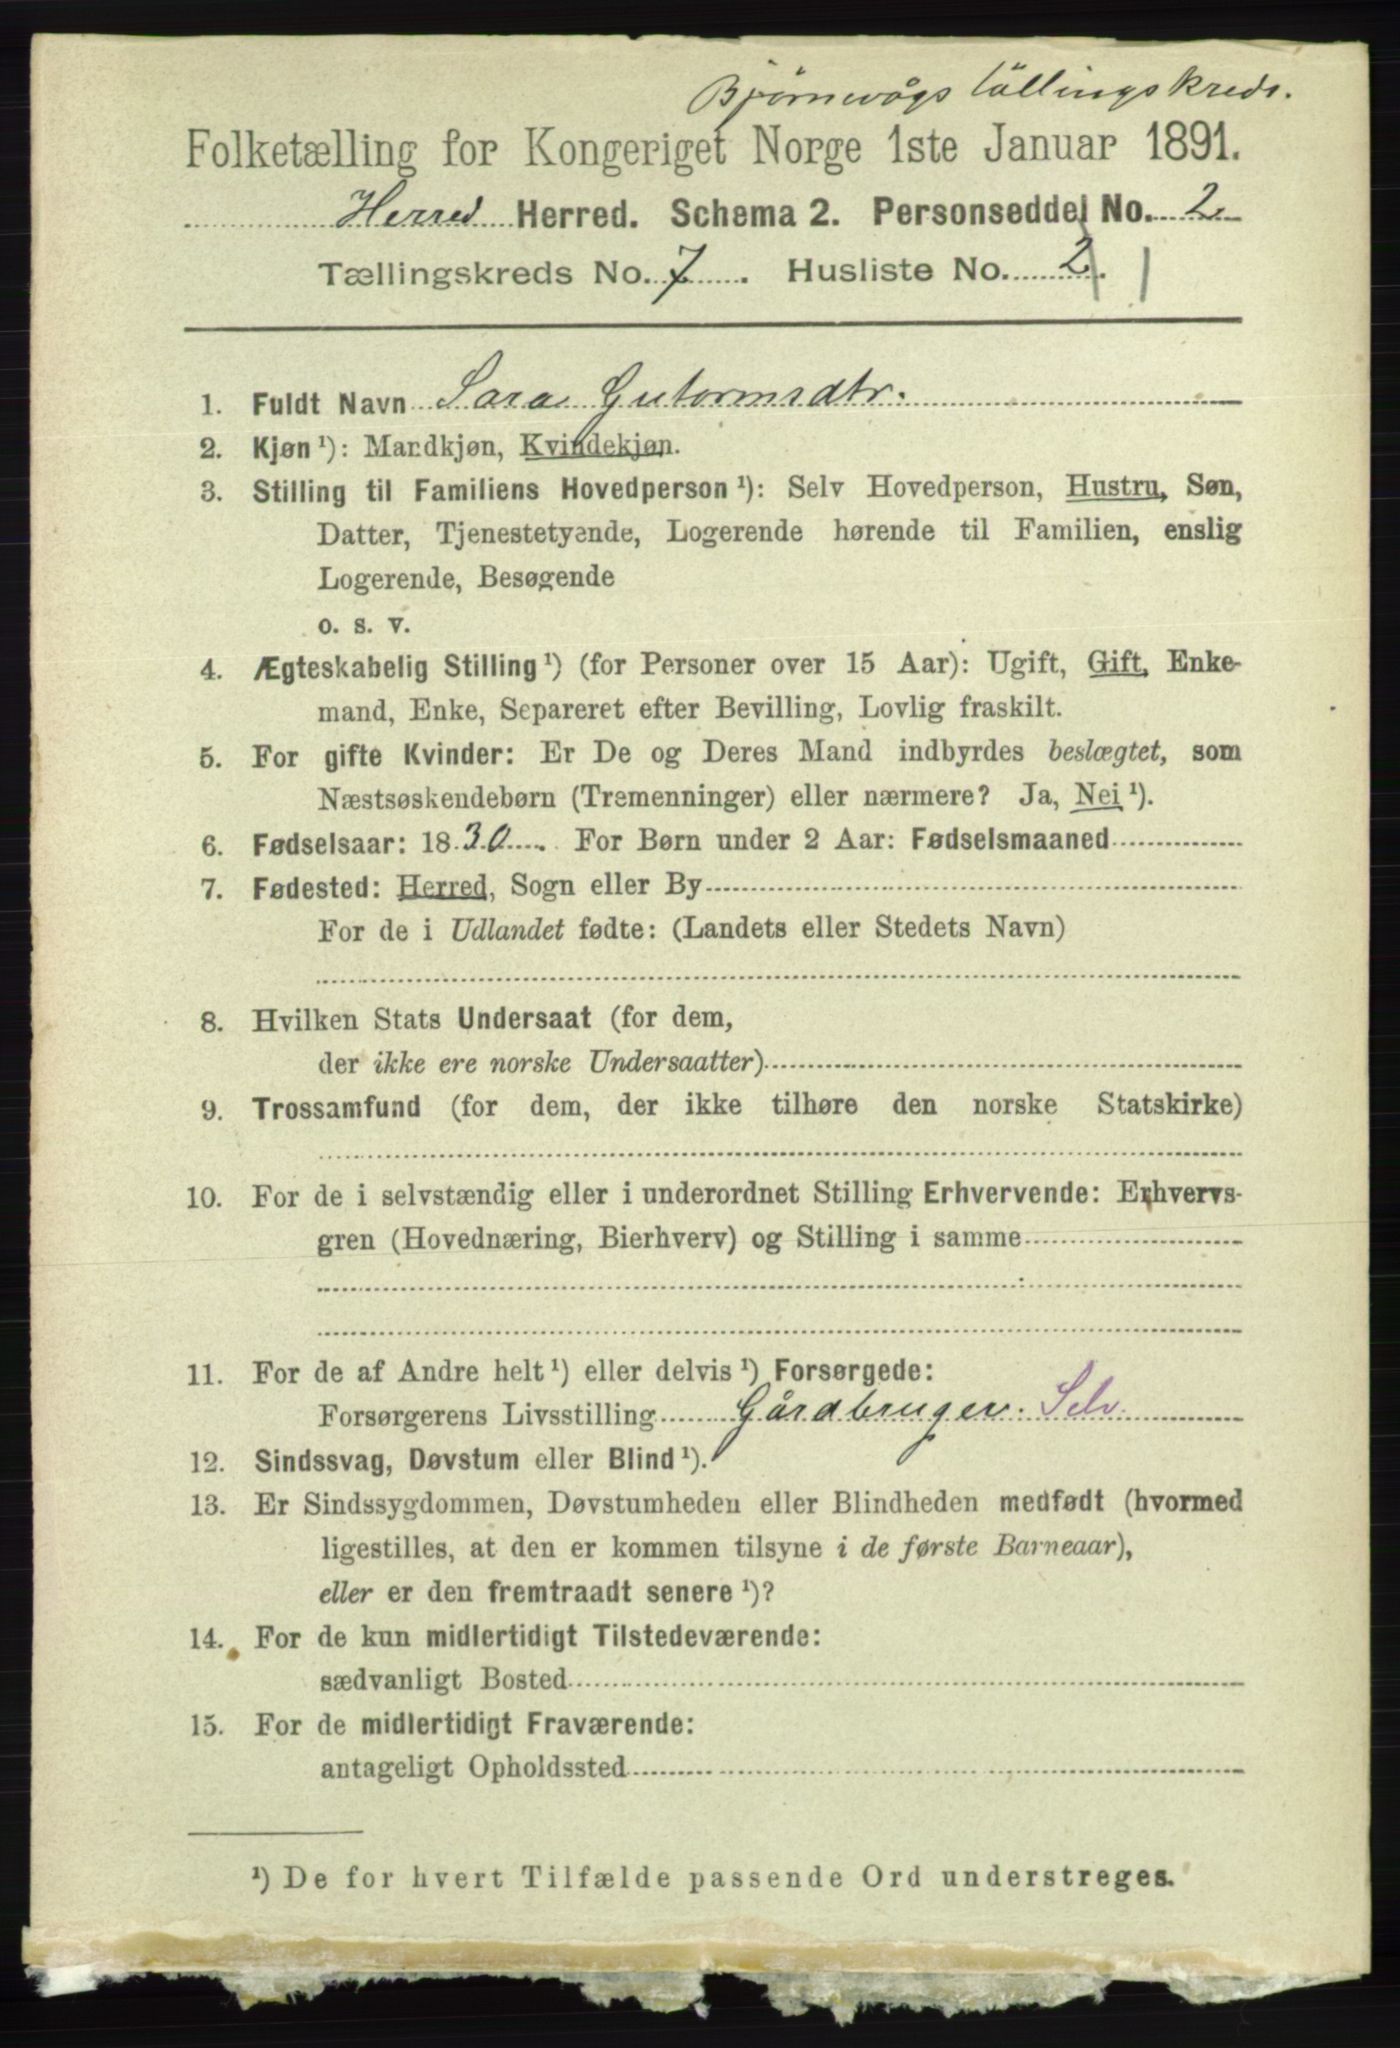 Bjørnevågs tällingskreds.
Folketælling for Kongeriget Norge 1ste Januar 1891.
Herred Herred. Schema 2. Personseddel No. 2
Tællingskreds No. 7. Husliste No. 2. 1
1. Fuldt Navn Sara Gutormsdtr.
2. Kjøn ¹): Mandkjøn, Kvindekjøn.
3. Stilling til Familiens Hovedperson ¹): Selv Hovedperson, Hustru, Søn,
Datter, Tjenestetyende, Logerende hørende til Familien, enslig
Logerende, Besøgende
o. s. v.
4. Ægteskabelig Stilling ¹) (for Personer over 15 Aar): Ugift, Gift, Enke-
mand, Enke, Separeret efter Bevilling, Lovlig fraskilt.
5. For gifte Kvinder: Er De og Deres Mand indbyrdes beslægtet, som
Næstsøskendebørn (Tremenninger) eller nærmere? Ja, Nei ¹).
6. Fødselsaar: 1830. For Børn under 2 Aar: Fødselsmaaned
7. Fødested: Herred, Sogn eller By
For de i Udlandet fødte: (Landets eller Stedets Navn)
8. Hvilken Stats Undersaat (for dem,
der ikke ere norske Undersaatter)
9. Trossamfund (for dem, der ikke tilhøre den norske Statskirke)
10. For de i selvstændig eller i underordnet Stilling Erhvervende: Erhvervs-
gren (Hovednæring, Bierhverv) og Stilling i samme
11. For de af Andre helt ¹) eller delvis ¹) Forsørgede:
Forsørgerens Livsstilling Gårdbruger. Selv.
12. Sindssvag, Døvstum eller Blind ¹).
13. Er Sindssygdommen, Døvstumheden eller Blindheden medfødt (hvormed
ligestilles, at den er kommen tilsyne i de første Barneaar),
eller er den fremtraadt senere ¹)?
14. For de kun midlertidigt Tilstedeværende:
sædvanligt Bosted
15. For de midlertidigt Fraværende:
antageligt Opholdssted
¹) De for hvert Tilfælde passende Ord understreges.